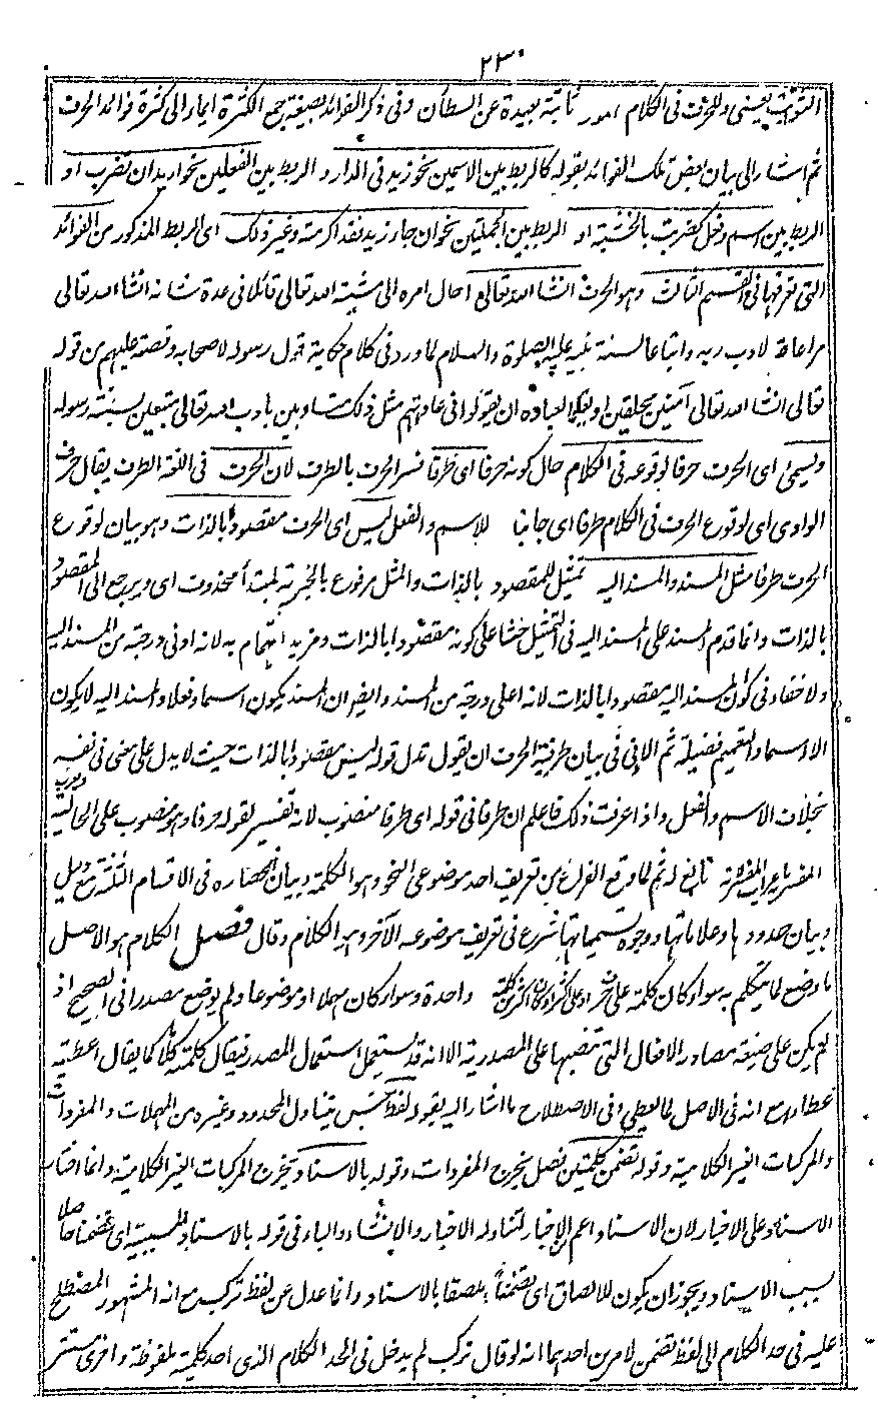 ٢٣٠
التوابيت يعنى وللحرف فى الكلام امور ثابتة بعيدة عن السطان وفى ذكر الفوائد بصيغة جمع الكثرة ايماء الى كثرة فوائد الحرف
ثم اشار الى بيان بعض تلك الفوائد بقوله كالربط بين الاسمين نحو زيد فى الدار والربط بين الفعلين نحو اريد ان تضرب او
الربط بين اسم وفعل كضربت بالخشبة او الربط بين الجملتين نحو ان جاء زيد فقد اكرمته وغير ذلك اى الربط المذكور من الفوائد
التى تعرفها فى القسم الثالث وهو الحرف انشاء الله تعالى احال امره الى مشية الله تعالى قائلا فى عدة شانه انشاء الله تعالى
مراعاة لادب ربه واتباعا لسنة نبيه عليه الصلوة والسلام لما ورد فى كلام حكاية قول رسوله لاصحابه وقصته عليهم من قوله
تعالى انشاء الله تعالى آمنين محلقين وتعليما لعباده ان يقولوا فى عداتهم مثل ذلك متادبين بادب الله تعالى متبعين بسنة رسوله
ويسمى اى الحرف حرفا لوقوعه فى الكلام حال كونه حرفا اى طرفا فسر الحرف بالطرف لان الحرف فى اللغة الطرف يقال حرف
الوادى اى لوقوع الحرف فى الكلام طرفا اى جانبا للاسم والفعل ليس اى الحرف مقصودا بالذات وهو بيان لوقوع
الحرف طرفا مثل المسند والمسند اليه تمثيل للمقصود بالذات والمثل مرفوع بالخبرية لمبتدأ محذوف اى ويرجع الى المقصود
بالذات وانما قدم المسند على المسند اليه فى التمثيل حثا على كونه مقصودا بالذات ومزيد اهتمام به لانه ادنى درجة من المسند اليه
ولا خفاء فى كون المسند اليه مقصودا بالذات لانه اعلى درجة من المسند وايضا ان المسند يكون اسما وفعلا والمسند اليه لا يكون
الا اسما والتعميم فضيلة ثم الاولى فى بيان طرفية الحرف ان يقول بدل قوله ليس مقصودا بالذات حيث لا يدل على معنى فى نفسه
بخلاف الاسم والفعل واذا عرفت ذلك فاعلم ان طرفا فى قوله اى طرفا منصوب لانه تفسير لقوله حرفا وهو منصوب على الحالية ويعرب
المفسر باعراب المفسر لانه تابع له ثم لما وقع الفراغ من تعريف احد موضوعى النحو وهو الكلمة وبيان انحصاره فى الاقسام الثلثة مع دليل
وبيان حدودها وعلاماتها ووجوه تسمياتها شرع فى تعريف موضوعه الآخر وهو الكلام وقال فصل الكلام هو الاصل
ما وضع لما يتكلم به سواء كان كلمة على حرف او على اكثر او كان اكثر من كلمة واحدة وسواء كان مهملا او موضوعا ولم يوضع مصدرا فى الصحيح اذ
لم يكن على صيغة مصادر الافعال التى تنصبها على المصدرية الا انه قد يستعمل استعمال المصدر فيقال كلمته كلاما كما يقال اعطيته
عطاء مع انه فى الاصل لما يعطى وفى الاصطلاح ما اشار اليه بقوله لفظ جنس يتناول المحدود وغيره من المهملات والمفردات
والمركبات الغير الكلامية وقوله تضمن كلمتين فصل يخرج المفردات وقوله بالاسناد يخرج المركبات الغير الكلامية وانما اختار
الاسناد على الاخبار لان الاسناد اعم من الاخبار لتناوله الاخبار والانشاء والباء فى قوله بالاسناد للسببية اى تضمنا حاصلا
بسبب الاسناد ويجوز ان يكون للالصاق اى تضمنا ملصقا بالاسناد وانما عدل عن لفظ تركب مع انه المشهور المصطلح
عليه فى حد الكلام الى لفظ تضمن لامرين احدهما انه لو قال تركب لم يدخل فى الحد الكلام الذى احد كلمتيه ملفوظة واخرى مستتر